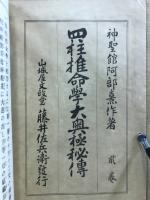 神聖館阿部熹作著
貳卷
四柱推命學大奧極秘傳
山城屋文政堂 藤井佐兵衛發行